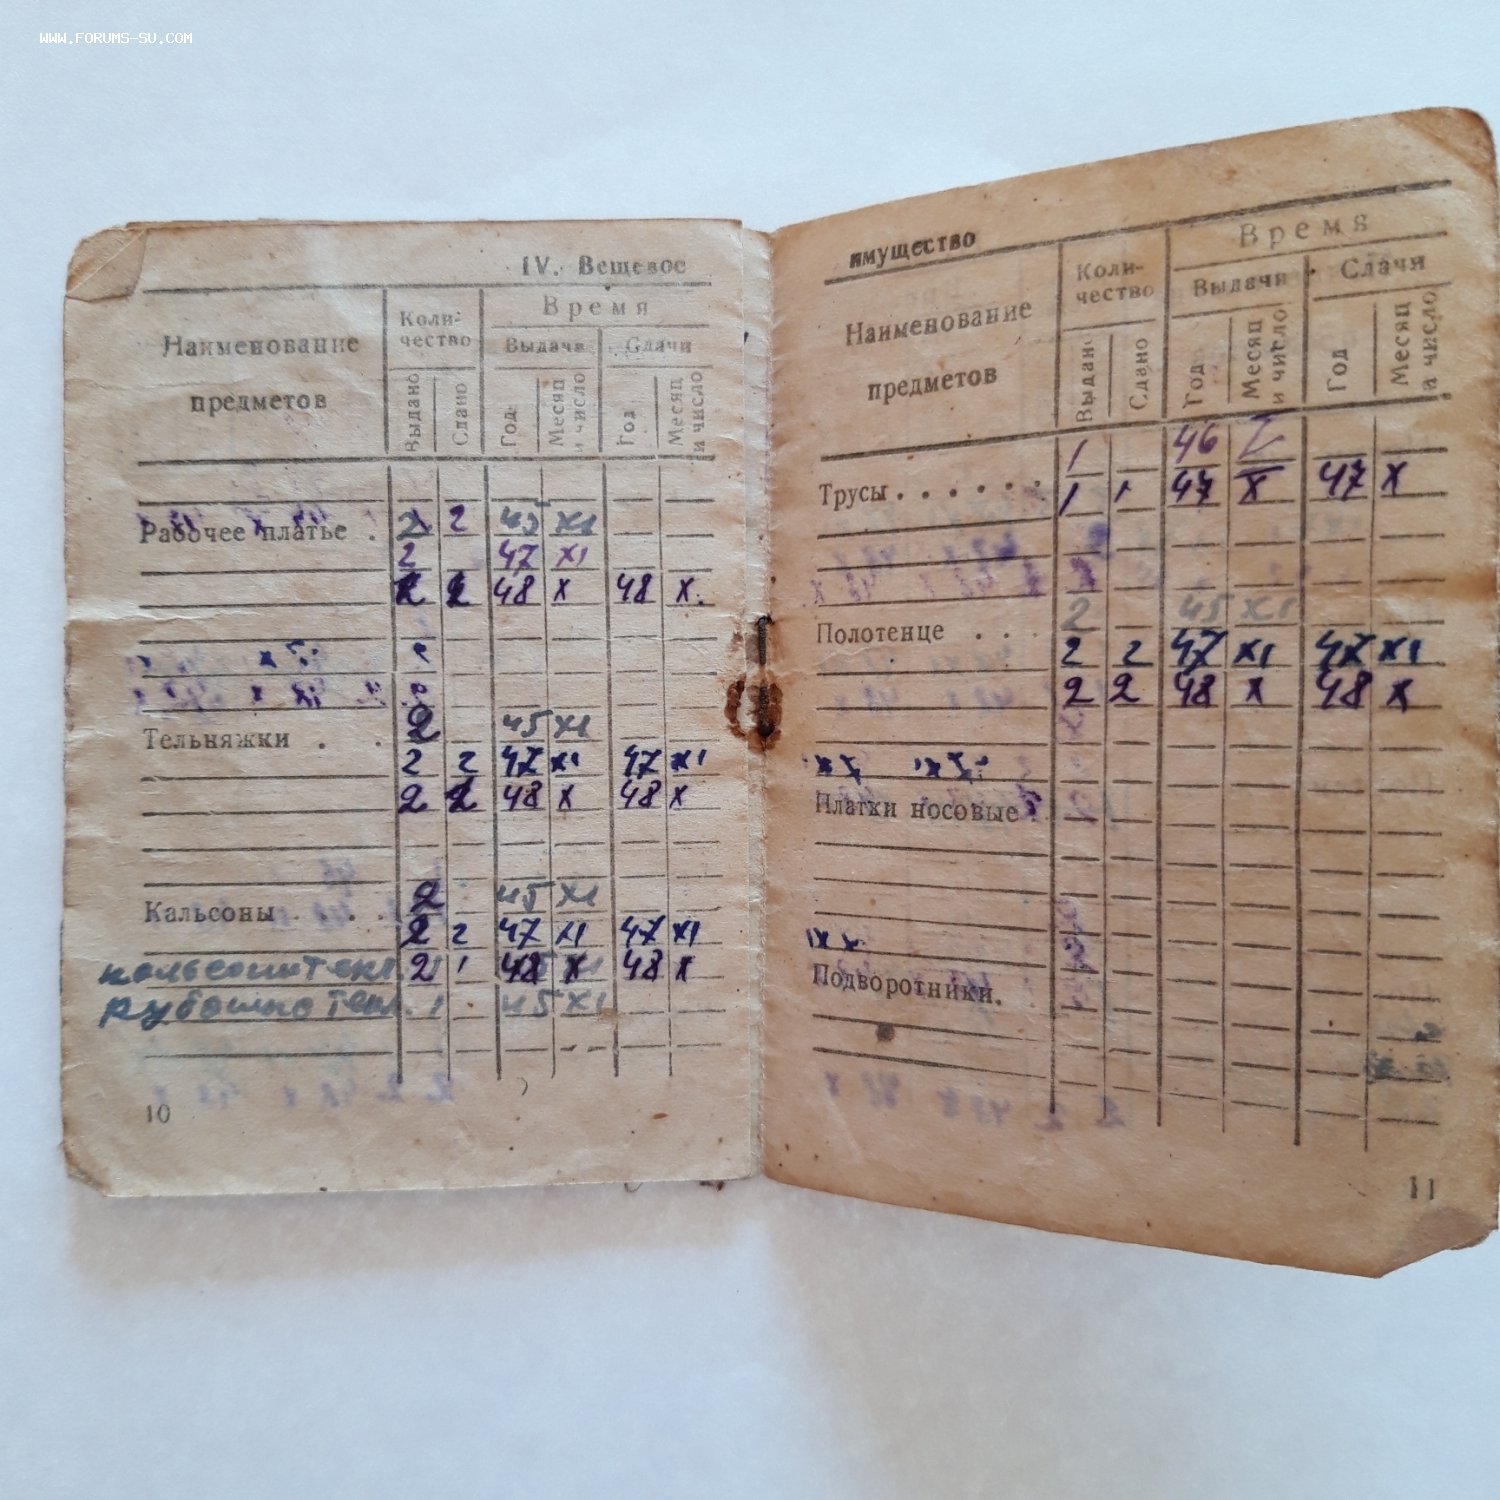 WWW.FORUMS-SU.COM
IV. Вещевое
Наименование предметов
Коли-
чество
Время
Выдачи
Сдачи
Выдано
Сдано
Год
Месяц и число
Год
Месяц и число
Рабочее платье . 2 2 45 XI
2 47 XI
2 2 48 X 48 X.
Тельняжки . . 2 45 XI
2 2 47 XI 47 XI
2 2 48 X 48 X
Кальсоны . . . 2 45 XI
2 2 47 XI 47 XI
2 1 48 X 48 X
рубашка теп. 1 45 XI
10
имущество
Наименование предметов
Коли-
чество
Время
Выдачи
Сдачи
Выдано
Сдано
Год
Месяц и число
Год
Месяц и число
1 46
Трусы . . . . . . 1 1 47 X 47 X
2 45 XI
Полотенце . . . 2 2 47 XI 47 XI
2 2 48 X 48 X
Платки носовые
Подворотники.
11